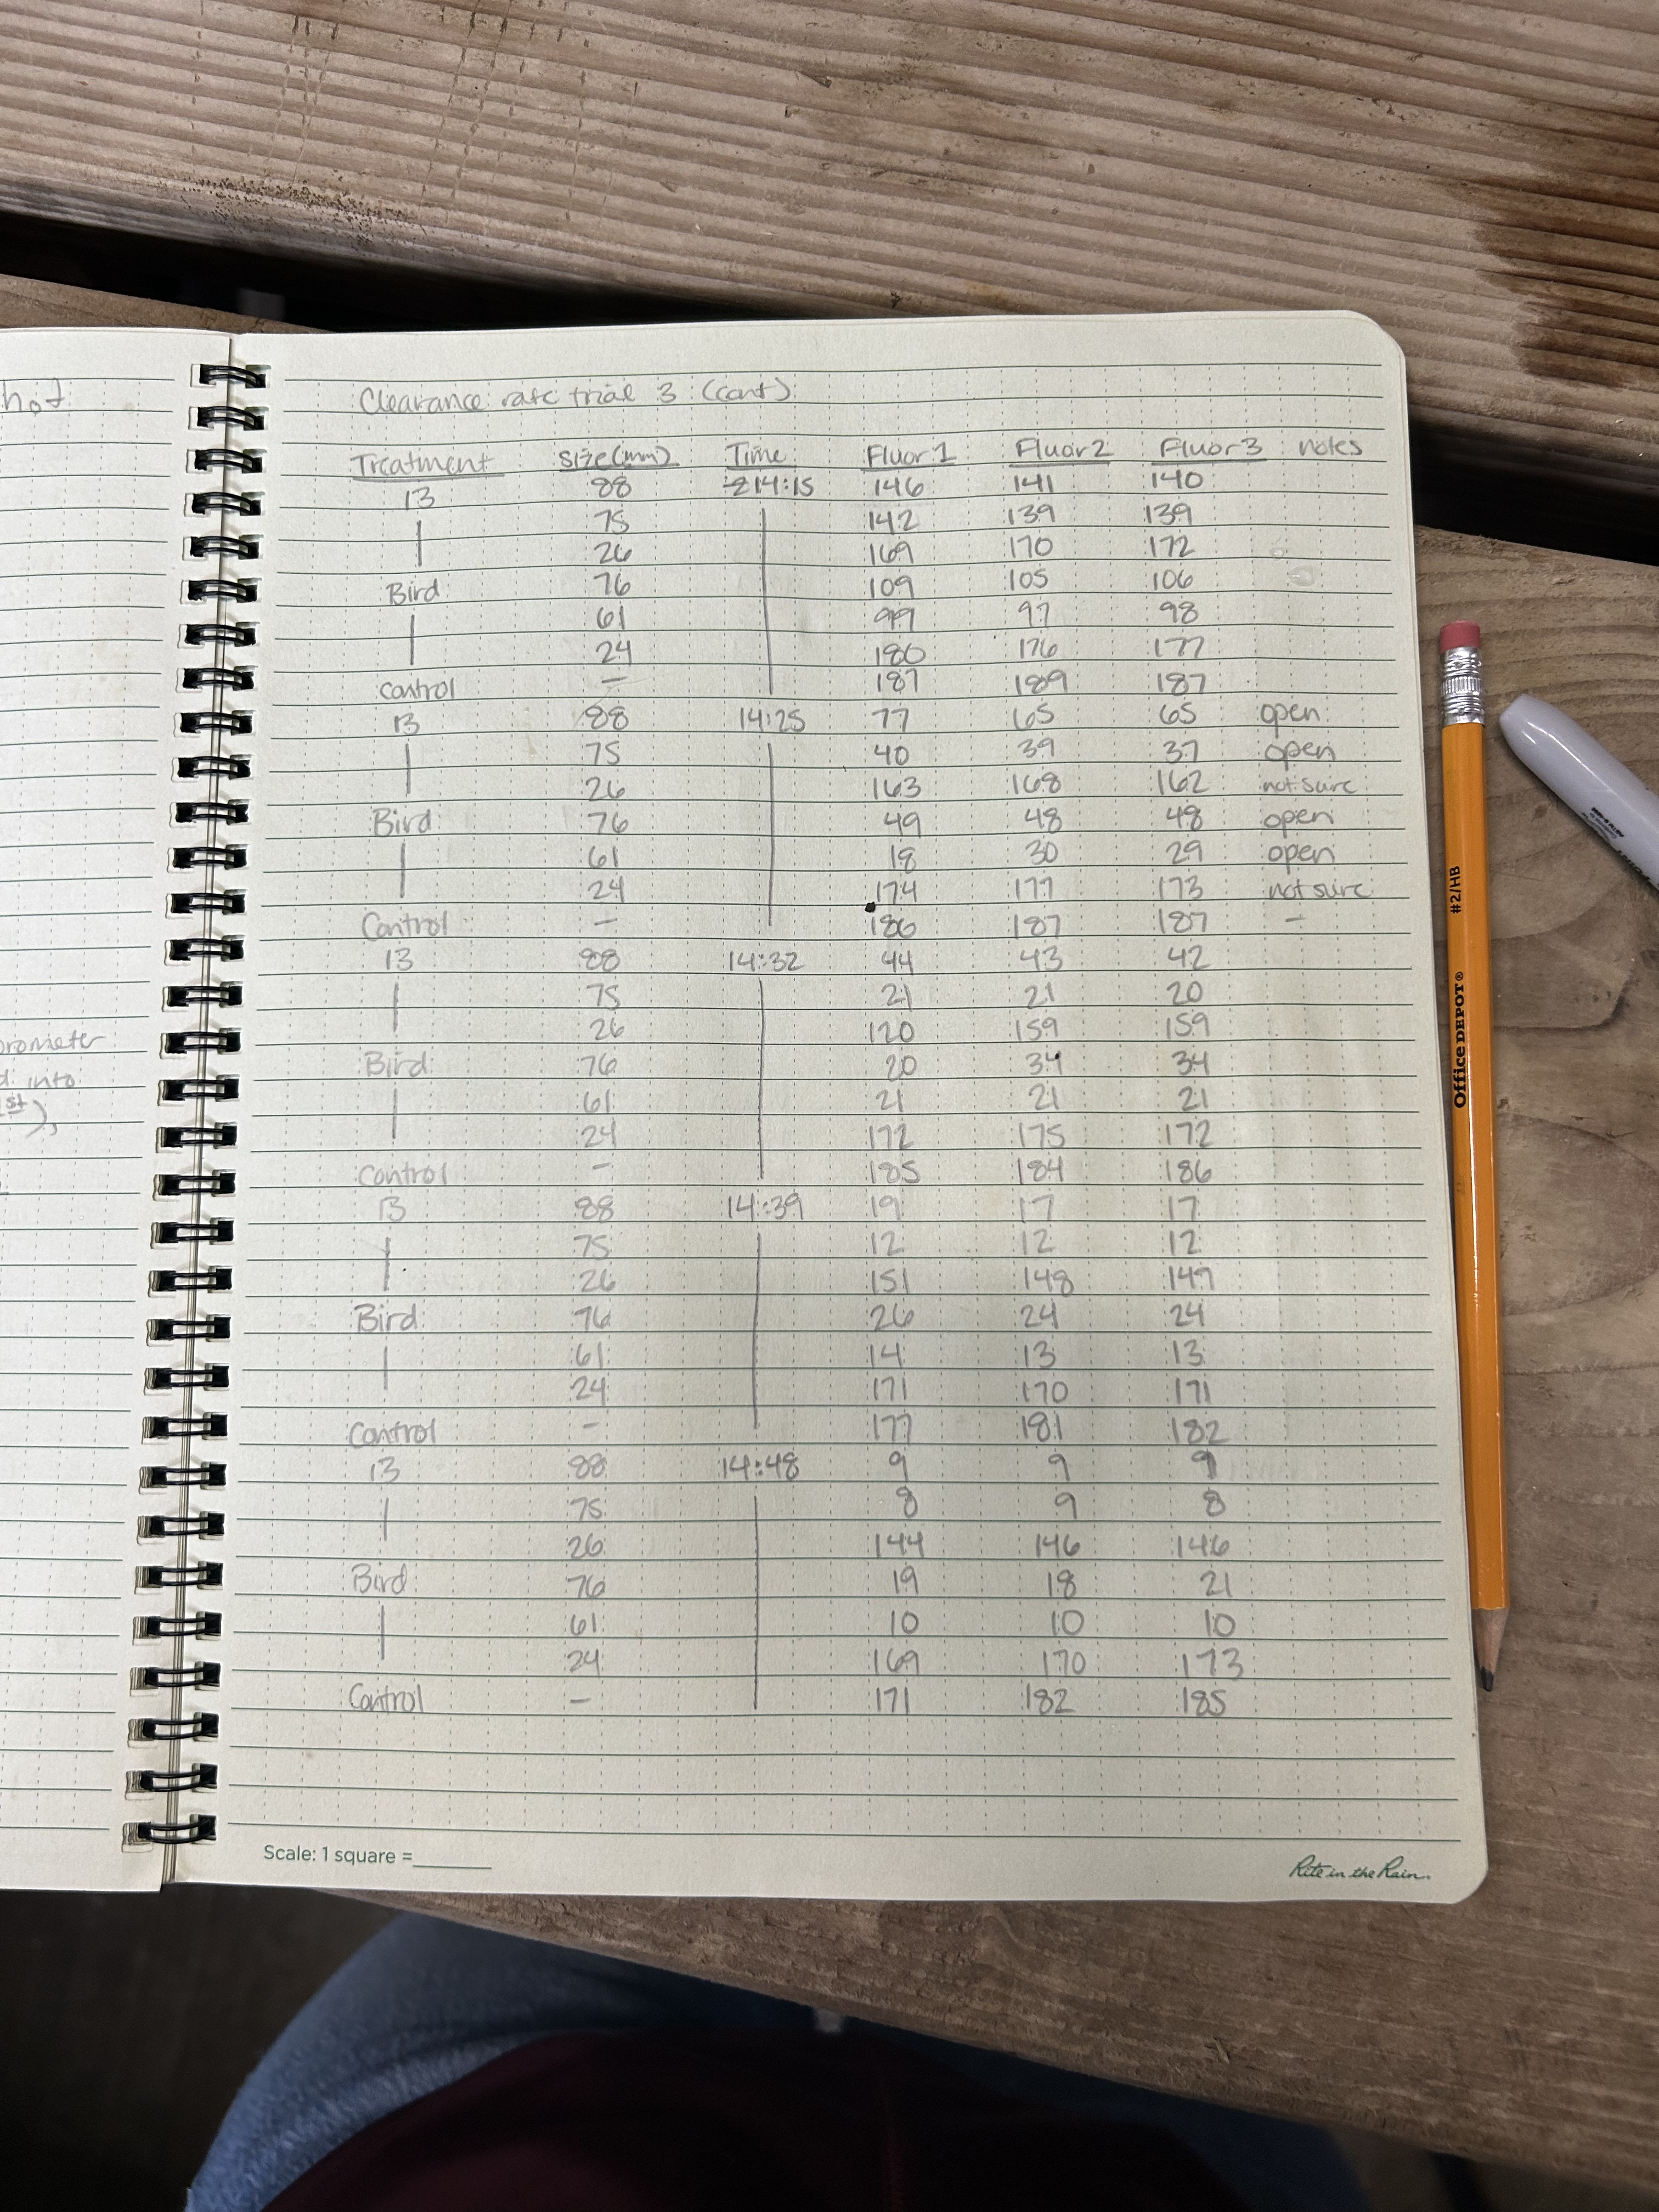 hot
orometer
d into
1st),
Clearance rate trial 3 (cont)
Treatment Size(mm) Time Fluor 1 Fluor 2 Fluor 3 notes
13 88 14:15 146 141 140
75 142 139 139
26 169 170 172
Bird 76 109 105 106
61 99 97 98
24 180 176 177
Control — 187 189 187
13 88 14:25 77 65 65 open
75 40 39 37 open
26 163 168 162 not sure
Bird 76 49 48 48 open
61 18 30 29 open
24 174 177 173 not sure
Control — 186 187 187 —
13 88 14:32 44 43 42
75 21 21 20
26 120 159 159
Bird 76 20 34 34
61 21 21 21
24 172 175 172
Control — 185 184 186
13 88 14:39 19 17 17
75 12 12 12
26 151 148 147
Bird 76 26 24 24
61 14 13 13
24 171 170 171
Control — 177 181 182
13 88 14:48 9 9 9
75 8 9 8
26 144 146 146
Bird 76 19 18 21
61 10 10 10
24 169 170 173
Control — 171 182 185
Scale: 1 square =
Rite in the Rain
Office DEPOT® #2/HB